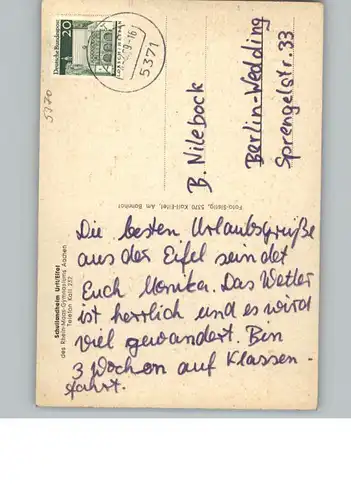 Deutsche Bundespost
20
9.-16
5371
5370
B. Nilebock
Berlin-Wedding
Sprengelstr. 33
Foto-Bisnig, 5370 Kall-Eifel, Am Bahnhof
Schullandheim Urft/Eifel
des Rhein-Maas-Gymnasiums Aachen
Telefon Kall 277
Die besten Urlaubsgrüße
aus der Eifel sendet
Euch Monika. Das Wetter
ist herrlich und es wird
viel gewandert. Bin
3 Wochen auf Klassen-
fahrt.